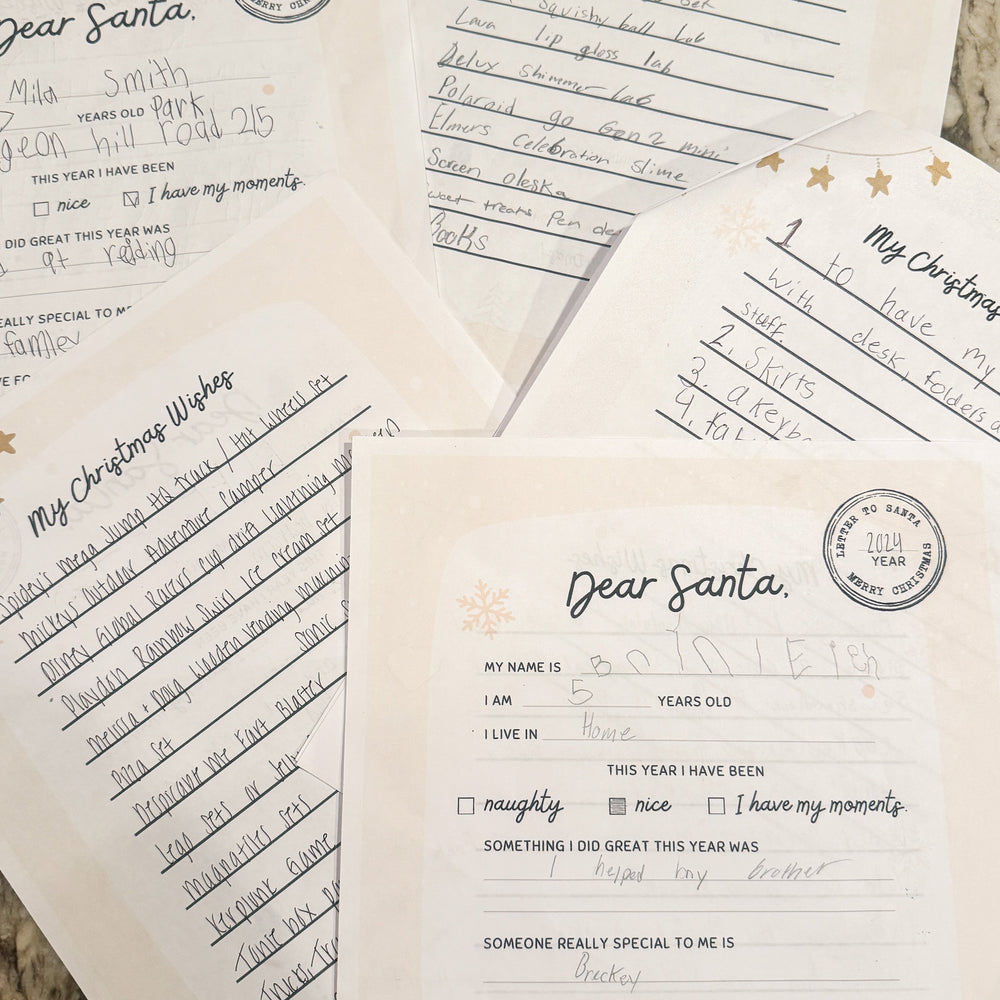 Dear Santa,
MERRY CHRISTMAS
Mila Smith
YEARS OLD Park
geon hill road 215
THIS YEAR I HAVE BEEN
nice I have my moments.
DID GREAT THIS YEAR WAS
at reding
EALLY SPECIAL TO ME
famley
VE FO
Squishy ball Lab
Lava lip gloss lab
Delux shimmer lab
Polaroid go Gen 2 mini
Elmers celebration slime
Screen oleska
sweet treats Pen de
Books
My Christmas
1 to have my
with desk, folders a
stuff.
2. Skirts
3. a Kerb
4.
My Christmas Wishes
Spidey's mega Jump HQ truck / Hot Wheels Set
Mickey's Outdoor Adventure Camper
Disney Global Racers cup drift Lightning m
Playdoh Rainbow Swirl Ice cream set
Melissa + Doug Wooden Vending machine
Pizza Set Sonic S
Despicable Me Fart Blaster
lego sets or
Magnatiles sets
Kerplunk Game
Tonie box
Trucks, Tra
LETTER TO SANTA
2024
YEAR
MERRY CHRISTMAS
Dear Santa,
MY NAME IS
I AM 5 YEARS OLD
I LIVE IN Home
THIS YEAR I HAVE BEEN
naughty nice I have my moments.
SOMETHING I DID GREAT THIS YEAR WAS
I helped my brother
SOMEONE REALLY SPECIAL TO ME IS
Breckey